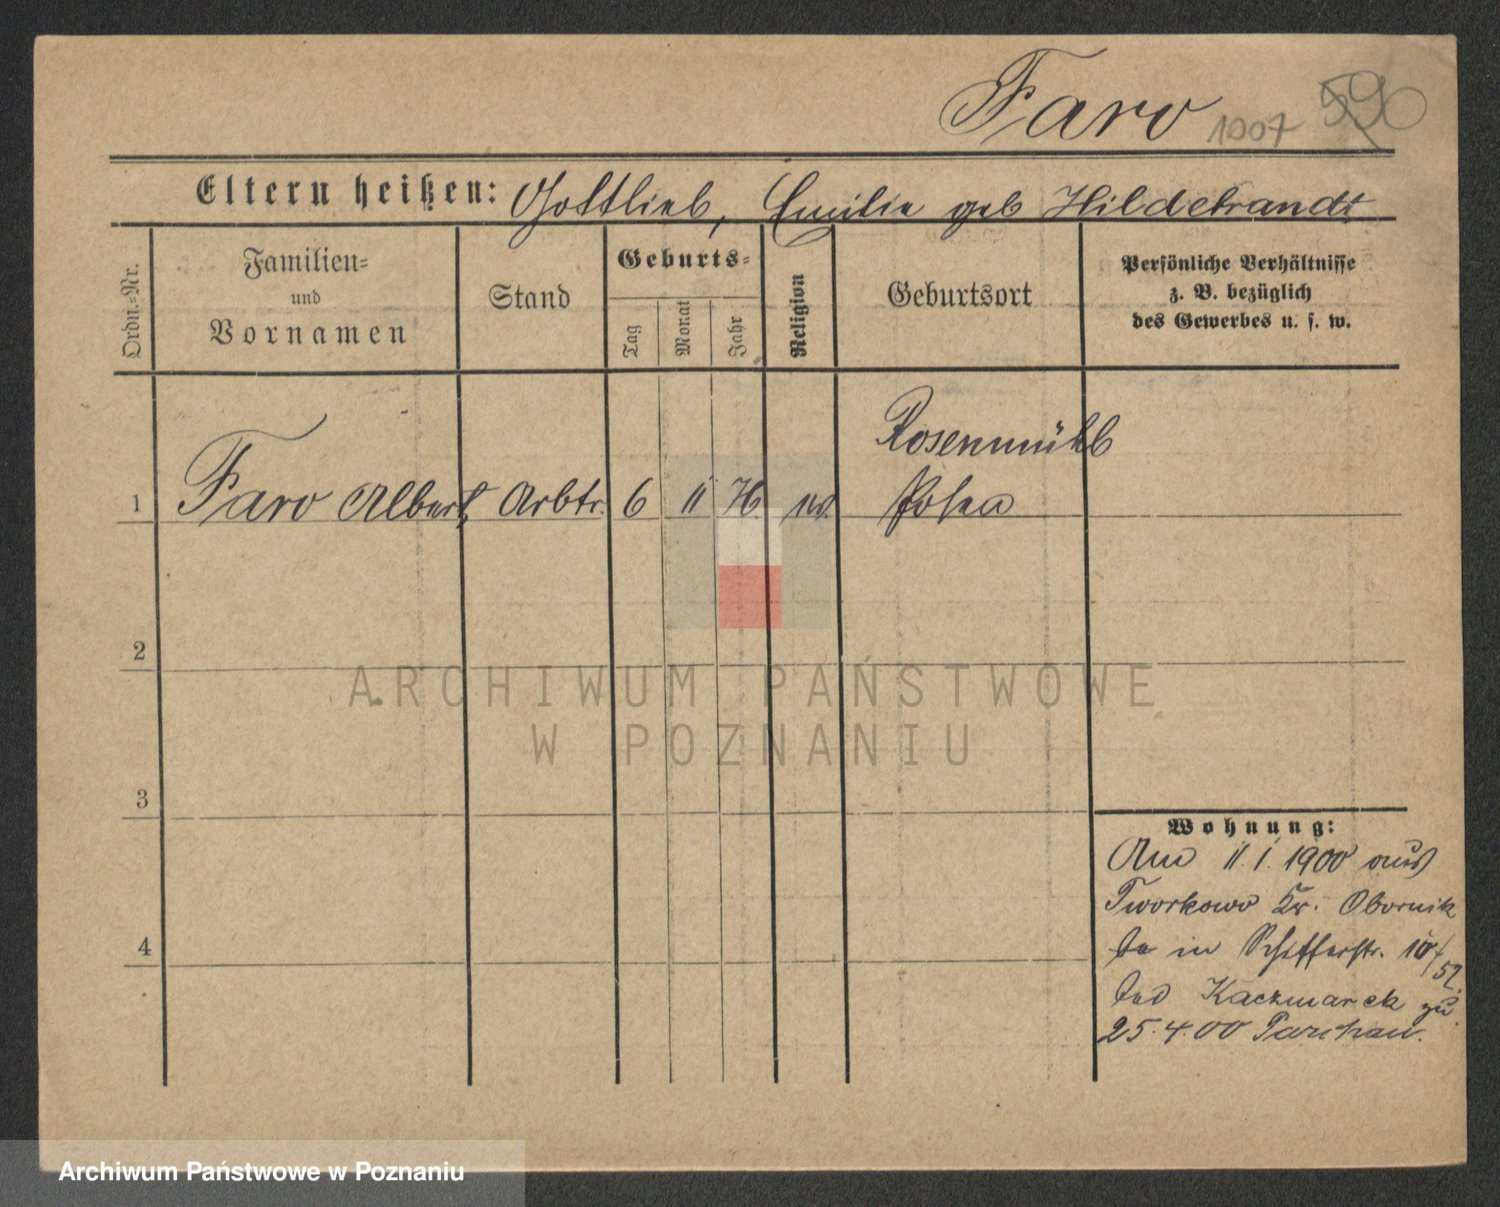 Faro 1007 590
Eltern heißen: Gottlieb, Emilie geb Hildebrandt
Ordn.-Nr.
Familien- und Vornamen
Stand
Geburts-
Tag
Monat
Jahr
Religion
Geburtsort
Persönliche Verhältnisse
z. B. bezüglich
des Gewerbes u. s. w.
Rosenmühl
1 Faro Albert Arbtr. 6 11 Posen
2
3
4
Wohnung:
Am 11.1.1900 aus
Tworkowo Kr. Obornik
in Schifferstr. 10/
52.
Kaczmarek zu
25.4.00
ARCHIWUM PAŃSTWOWE
W POZNANIU
Archiwum Państwowe w Poznaniu